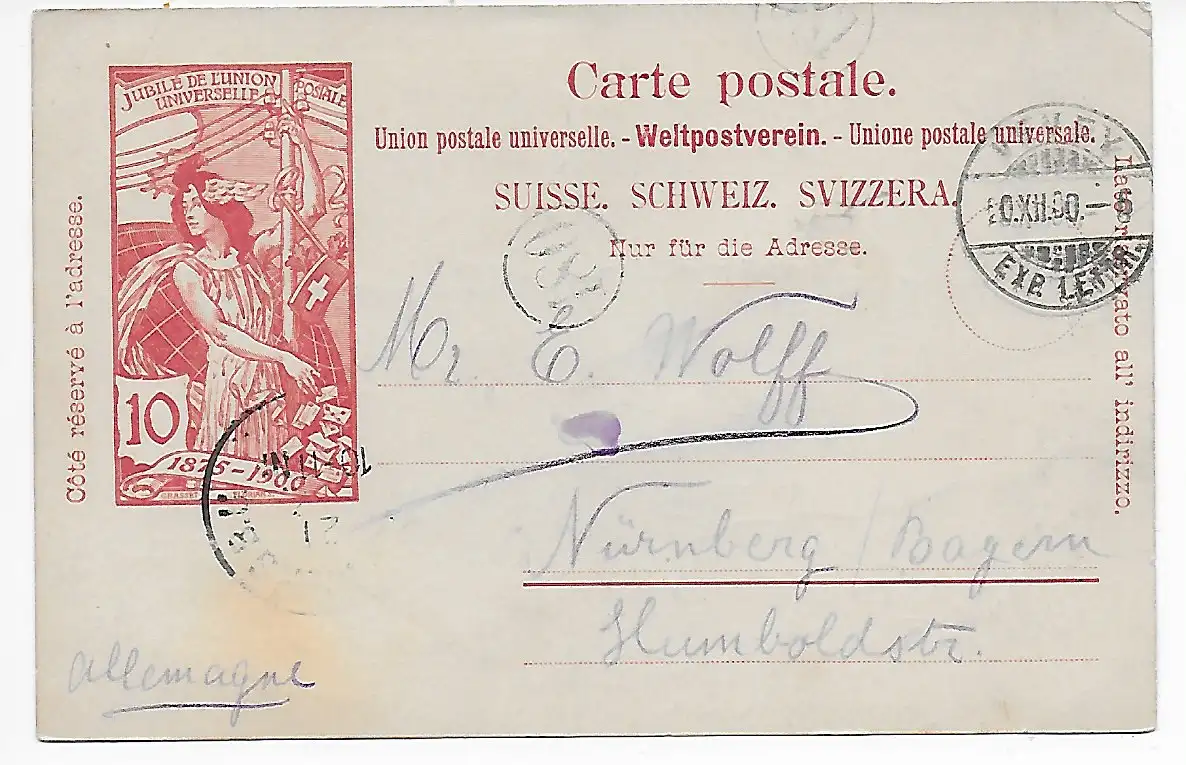 JUBILÉ DE L'UNION
POSTALE
UNIVERSELLE
10
1875-1900
GRASSET
FLORIAN
Côté réservé à l'adresse.
Carte postale.
Union postale universelle. - Weltpostverein. - Unione postale universale.
SUISSE. SCHWEIZ. SVIZZERA.
Nur für die Adresse.
Lato riservato all' indirizzo.
0.XII.00.-6
EXP. LETTR.
Mr. E. Wolff
Nürnberg / Bayern
Humboldstr.
Allemagne